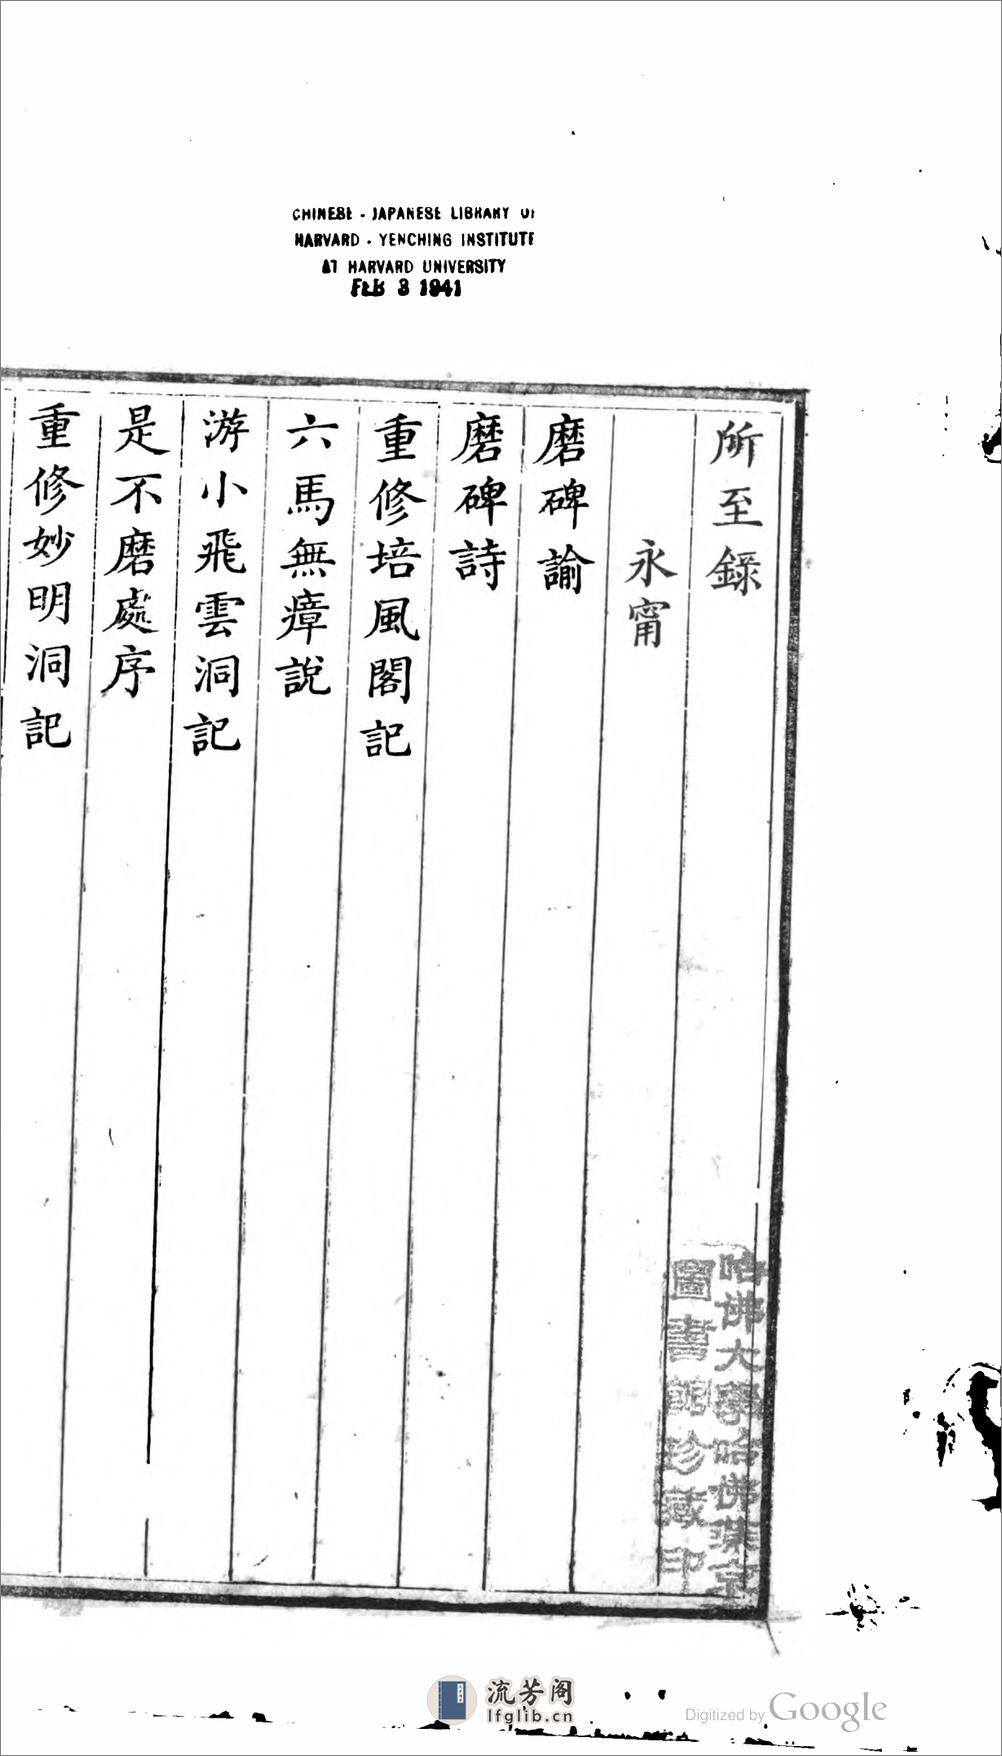 CHINESE - JAPANESE LIBRARY OF
HARVARD - YENCHING INSTITUTE
AT HARVARD UNIVERSITY
FEB 3 1941
所至錄
永甯
磨碑諭
磨碑詩
重修培風閣記
六馬無瘴說
游小飛雲洞記
是不磨處序
重修妙明洞記
哈佛大學哈佛燕京
圖書館珍藏印
流芳阁
lfglib.cn
Digitized by Google